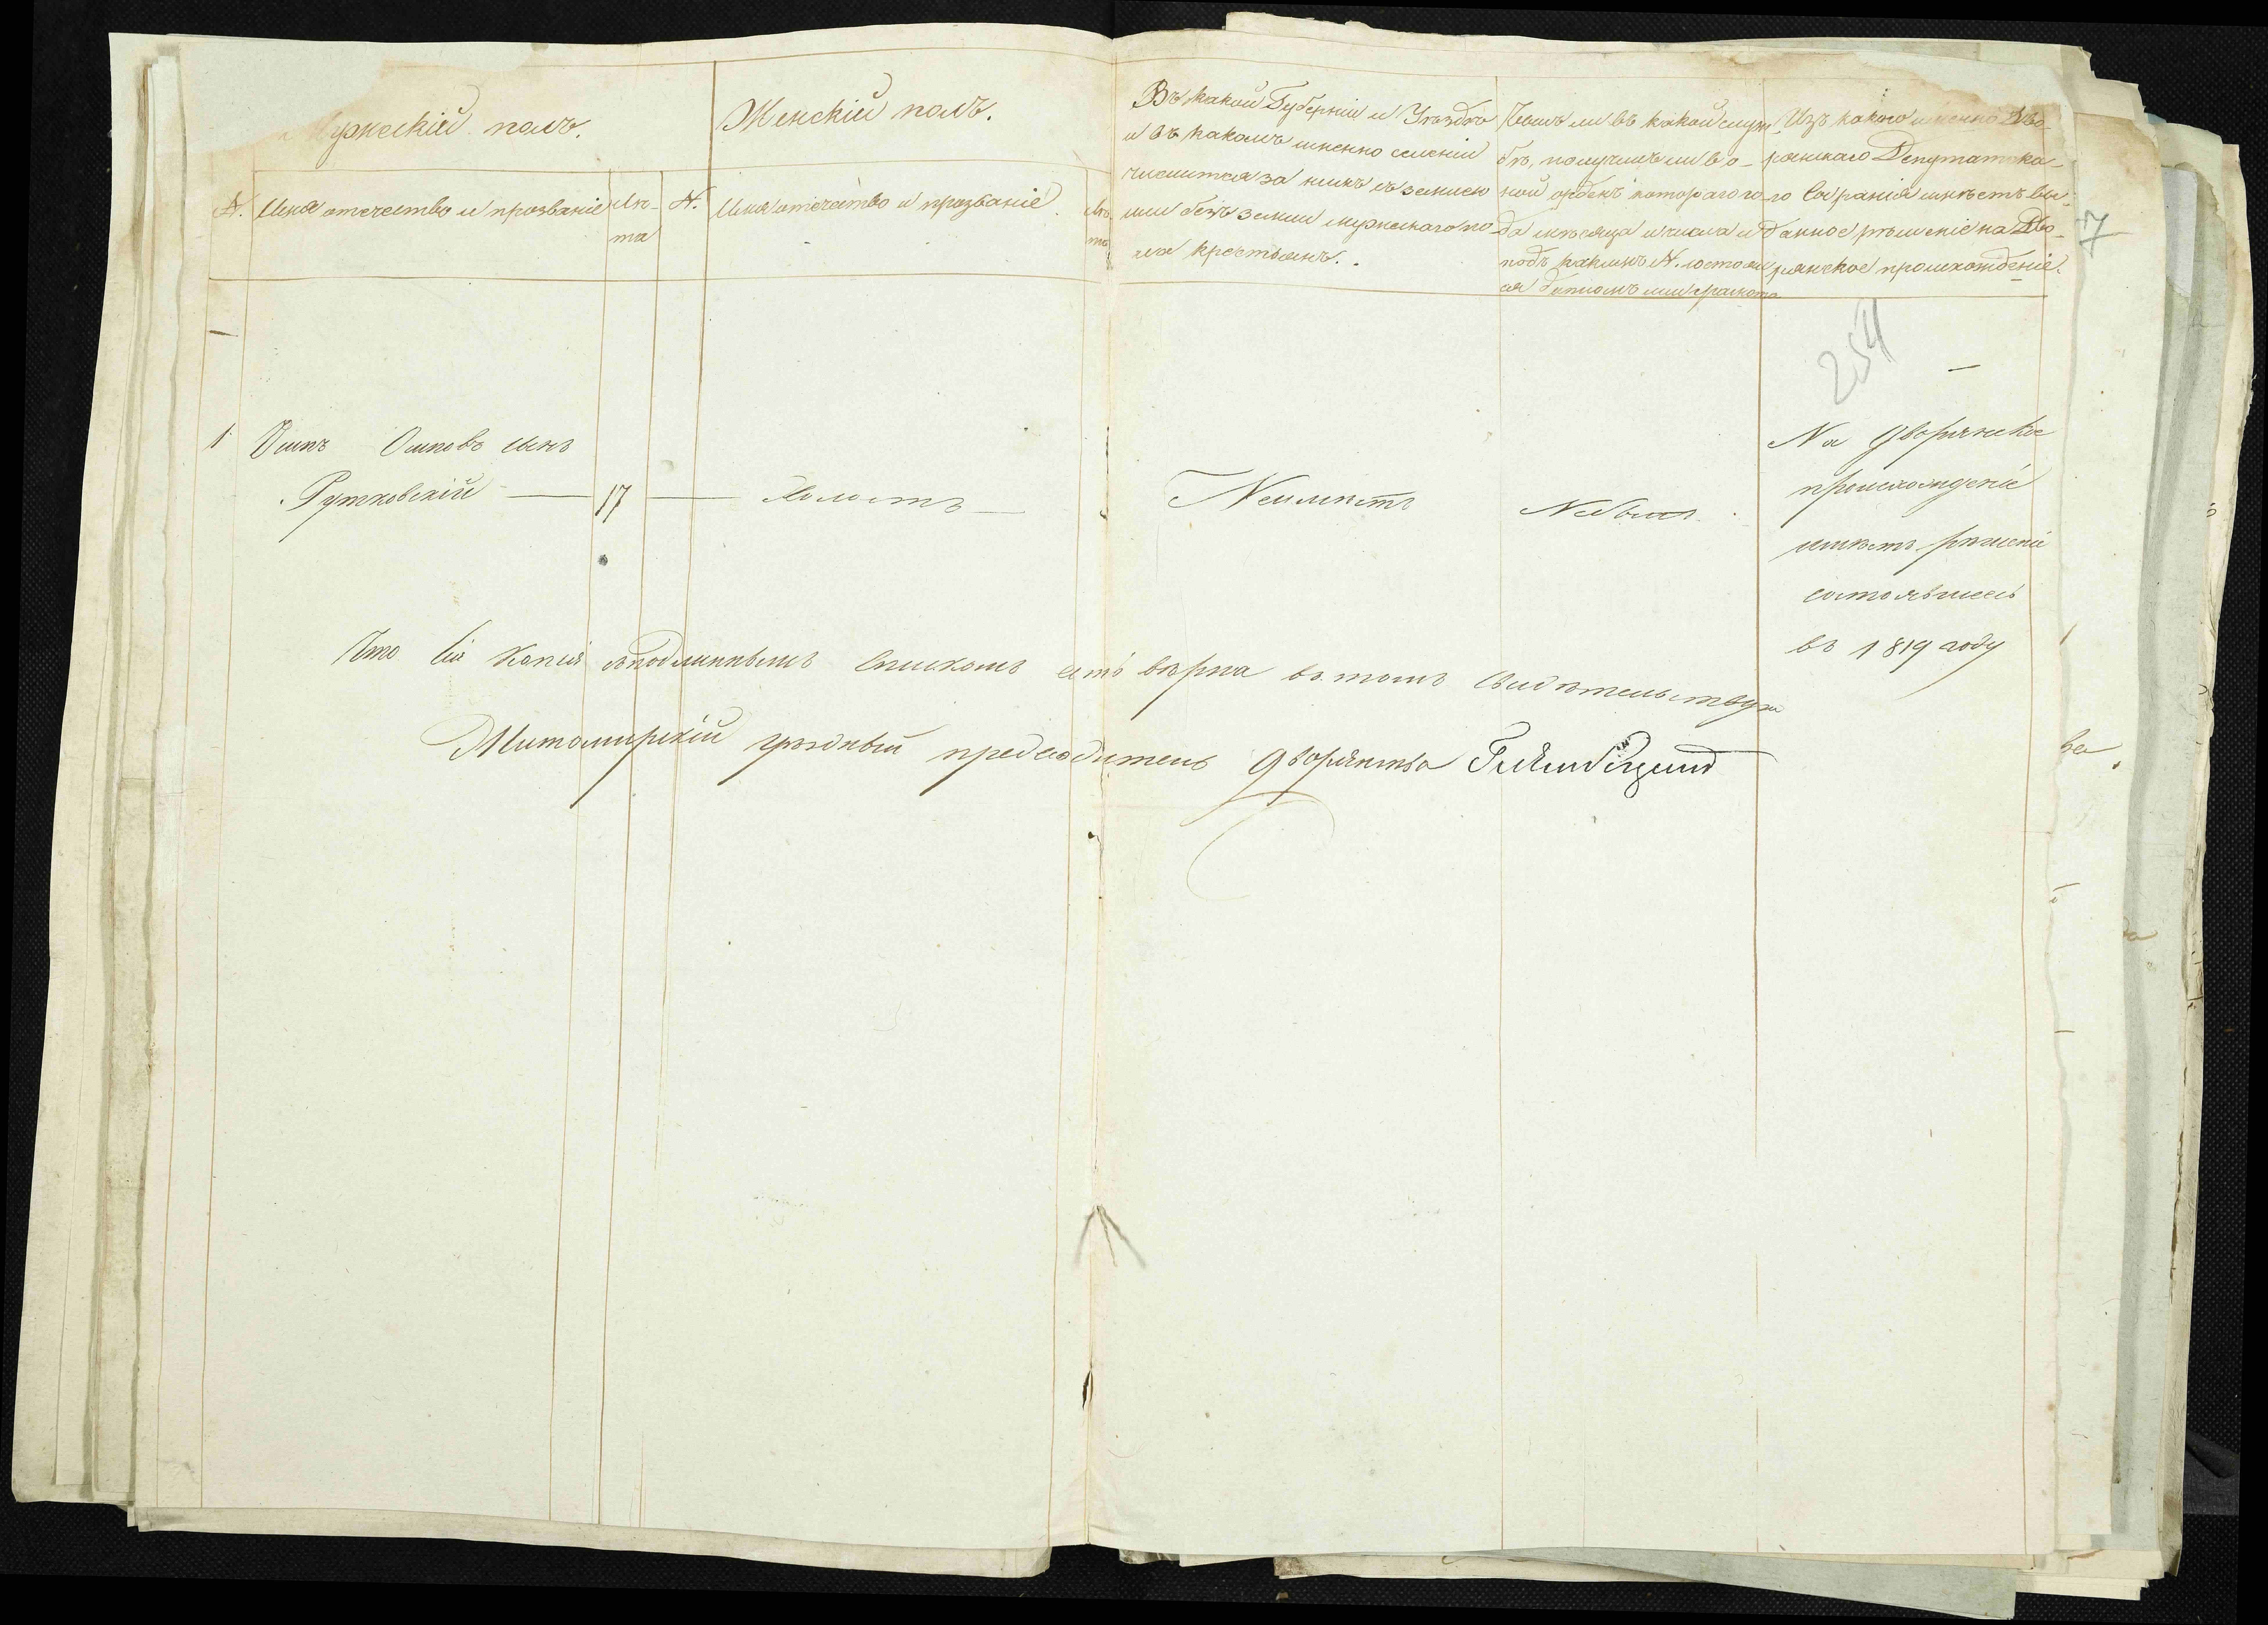 Мужескій полъ.
Женскій полъ.
N. Имя отечество и прозваніе
лѣ-
та
N. Имя отечество и прозваніе
лѣ-
та
Въ какой Губерніи и Уѣздѣ
и въ какомъ именно селеніи
числится за нимъ съ землею
или безъ земли мужескаго по-
ла крестьянъ.
Былъ ли въ какой служ-
бѣ, получилъ ли во-
ной орденъ котораго го-
да мѣсяца и числа и
подъ какимъ N. состоял
ся дипломъ или грамота
Изъ какого именно Дво-
рянскаго Депутатска-
го Собранія имѣетъ вы-
данное рѣшеніе на Дво-
рянское происхожденіе.
7
254
1 Осипъ Осиповъ сынъ
Рутковскій 17 Холостъ
Неимѣетъ
Небылъ.
На дворянское
происхожденіе
имѣетъ рѣшеніе
состоявшеесь
въ 1819 году
Что сія копія съ подлиннымъ спискомъ есть вѣрна въ томъ свидѣтельствую
Житомирскій уѣздный предводитель дворянства